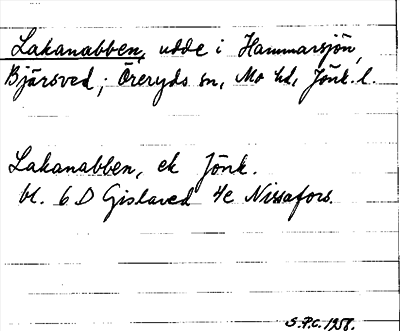 Lakanabben, udde i Hammarsjön,
Bjärsved; Öreryds sn, Mo hd, Jönk. l.
Lakanabben, ek Jönk.
bl. 6 D Gislaved 4e Nissafors.
S.P.C. 1958.